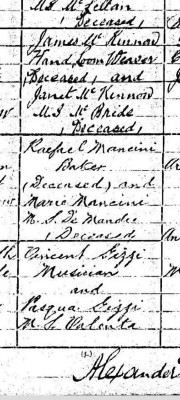 M.S. McLellan
(Deceased)
James Mc Kinnon
Hand Loom Weaver
(Deceased) and
Janet Mc Kinnon
M.S. Mc Bride
(Deceased)
Raefael Mancini
Baker
(Deceased) and
Marie Mancini
M.S. Di Mandie
(Deceased
Vincent Gizzi
Musician
and
Pasqua Gizzi
M.S. Valenta
Alexander